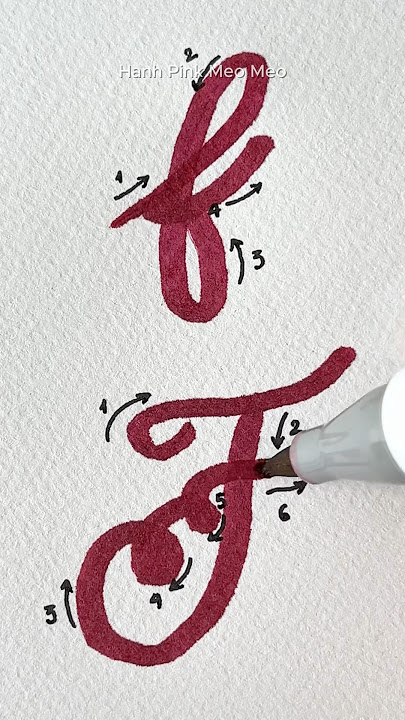 Hanh Pink Meo Meo
2
1
f
4
3
1
2
F
5
6
3
4